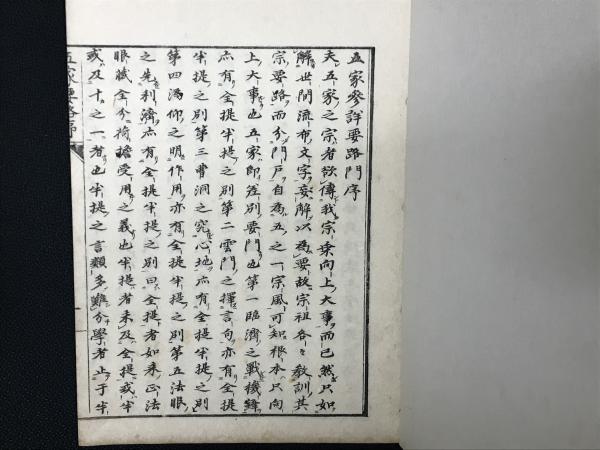 五家參詳要路門序
夫五家之宗者欲傳我宗乘向上大事而已然只如
解世間流布文字妄解以為要故宗祖各々教訓其
宗要路而分門戶自為五之一宗風可知根本只向
上大事也五家即差別要門也第一臨濟之戰機鋒
亦有全提半提之別第二雲門之擇言句亦有全提
半提之別第三曹洞之究心地亦有全提半提之別
第四溈仰之明作用亦有全提半提之別第五法眼
之先利濟亦有全提半提之別曰全提者如來正法
眼藏全分荷擔受用之義也半提者未及全提或半
或及十之一者也半提之言類多難分學者止于半
五家要路序